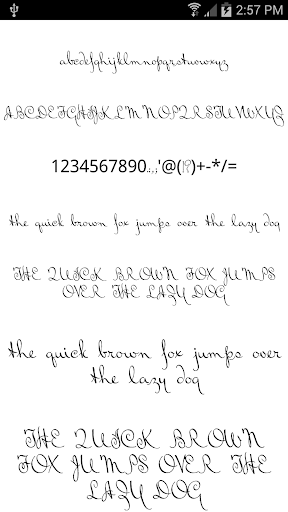 2:57 PM
abcdefghijklmnopqrstuvwxyz
ABCDEFGHIJKLMNOPQRSTUVWXYZ
1234567890.,;'@(!?)+-*/=
the quick brown fox jumps over the lazy dog
THE QUICK BROWN FOX JUMPS
OVER THE LAZY DOG
the quick brown fox jumps over
the lazy dog
THE QUICK BROWN
FOX JUMPS OVER THE
LAZY DOG